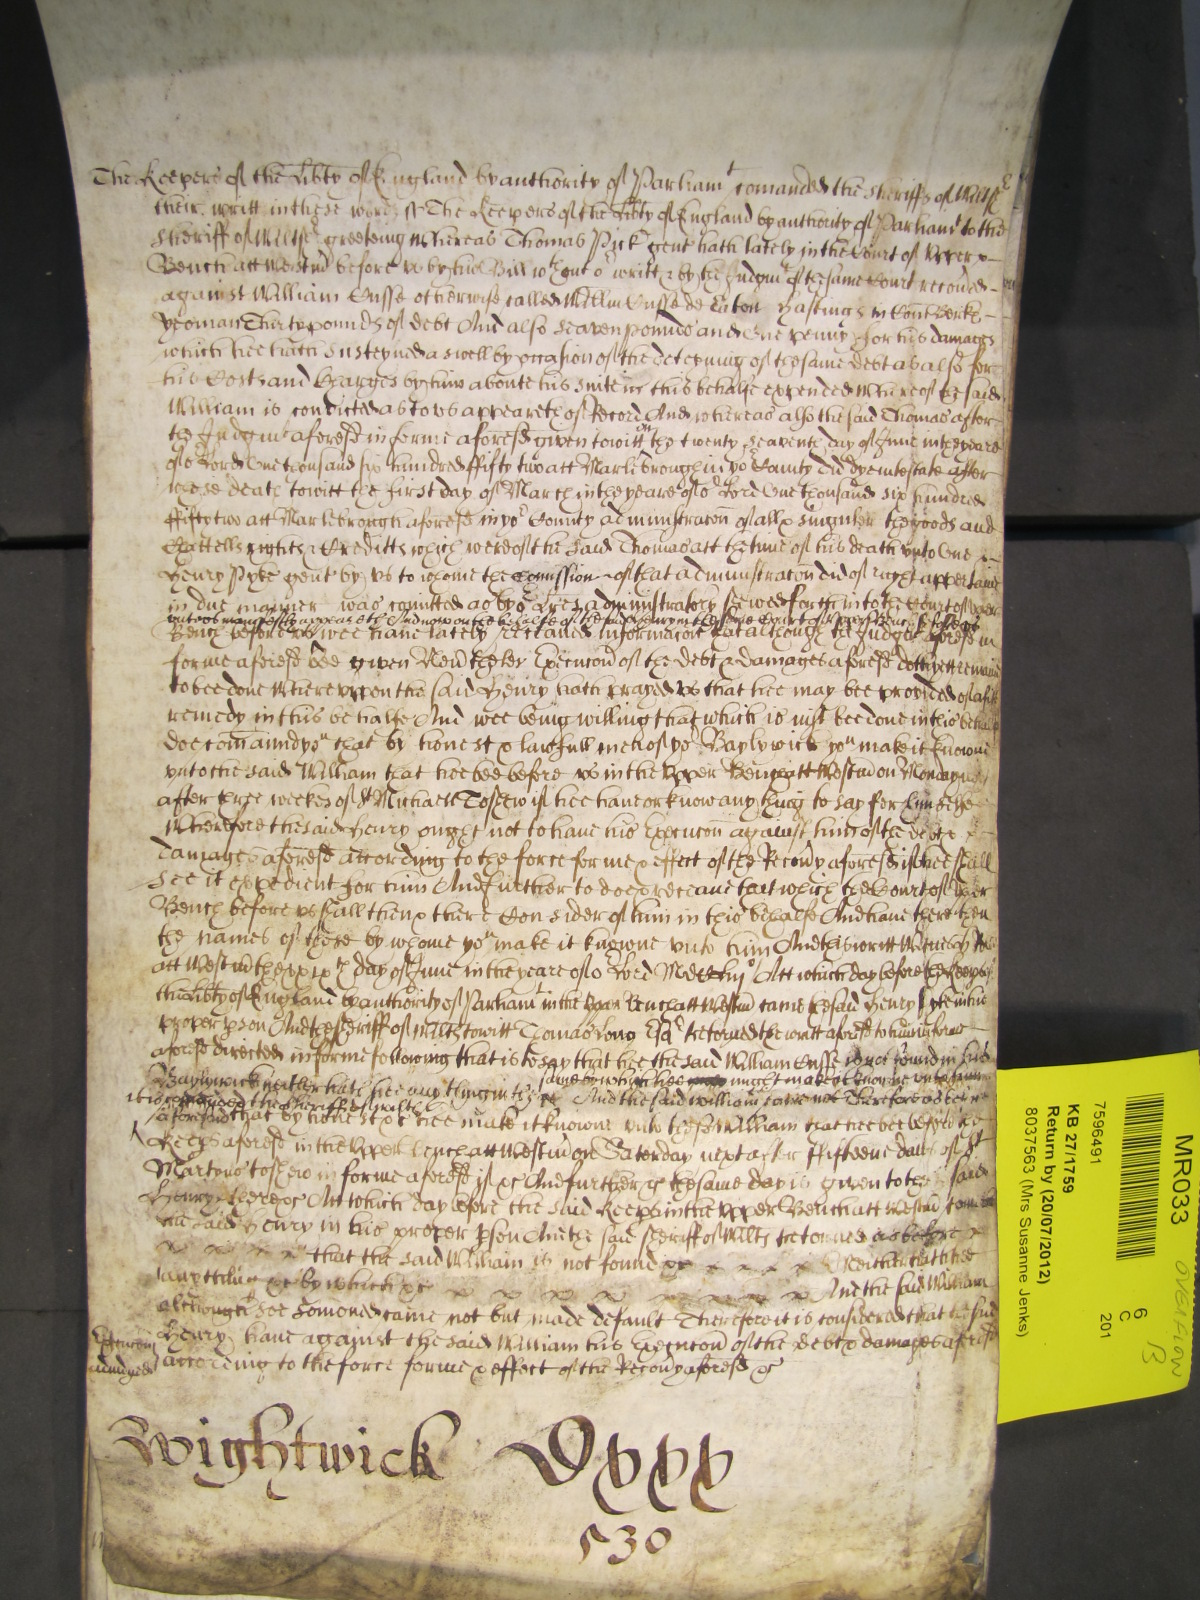 The Keepers of the Libty of England by authority of Parliamt comanded the Sheriffe of Wiltes
their writt in these words ss The Keepers of the Libty of England by authority of Parliamt to the
Sheriff of Wiltes greeteing Whereas Thomas Pyck gent hath lately in the Court of Upper
Bench att Westmr before us by his Bill wthout or writt & by the Judgmt of the same Court recouered
against William Cusse otherwise called Willm Cusse de Eaton Hastings in Com Berk
yeoman Thirty pounds of debt And also Seaven pounds and One penny for his damages
which hee hath susteyned aswell by occasion of the deteyning of the same debt as also for
his Costs and Charges by him aboute his suite in this behalfe expended Whereof the said
William is convicted as to us appeareth of Record And whereas also the said Thomas after
the Judgmt aforesd in forme aforesd given towitt on the twenty seaventh day of June in the yeare
of or Lord One thousand six hundred fifty two att Marlebrough in yor County did dye intestate after
whose death towitt the first day of March in the yeare of or Lord One thousand six hundred
fifty two att Marlebrough aforesd in yor County administracon of all & singuler the goods and
Chattells rights & Creditts which were of the said Thomas att the time of his death unto One
Henry Pyke gent by us to whome the Comission of that administracon did of right apperteine
in due manner was comitted as by or Lres administratory shewed forth into the Court of Upper
unto us manifestly appeareth And now on the behalfe of the said Henry in the same Court of Upper Bench before us
Bench before us wee haue lately receaued Informacion that although the Judgmt aforesd in
forme aforesd bee given Neverthelesse Execucon of the debt & damages aforesd doth yett remaine
to bee done Whereuppon the said Henry hath prayed us that hee may bee provided of a fitt
remedy in this behalfe And wee being willing that which is iust bee done in this behalfe
doe comaund you that by honest & lawfull men of yor Baylywick you make it knowne
unto the said William that hee bee before us in the Upper Bench att Westmr on Monday next
after three weekes of St Michaell To shew if hee haue or know any thing to say for himselfe
Wherefore the said Henry ought not to haue his Execucon against him of the debt &
damages aforesd according to the force forme & effect of the Recovy aforesd if hee shall
see it expedient for him And further to doe & receaue that which the Court of Upper
Bench before us shall then & there Consider of him in this behalfe And haue there then
the names of those by whome you make it knowne unto him And this writt Witnes
att Westmr the xxixth day of June in the yeare of or Lord Att which day before the Keepers of
the Libty of England by authority of Parliamt in the Upper Bench att Westmr came the said Henry Pyke in his
proper pson And the Sheriff of Wilts towitt Thomas Long Esqr retorned the writt aforesd to him in forme
aforesd directed in forme following that is to say that hee the said William Cusse is not found in his
Baylywick neither hath hee any thing in the same by which hee might make it knowne unto him
And the said William came not Therefore as before
it is comanded the Sheriffe of Wilts
aforesaid that by honest &c hee make it knowne unto the said William that hee bee before the
Keeps aforesd in the Upper Bench att Westmr on Saterday next after fifteene dayes of St
Martyne to shew in forme aforesd if &c And further &c the same day is given to the said
Henry there &c Att which day before the said Keeps in the Upper Bench att Westmr cometh
the said Henry in his proper pson And the said Sheriff of Wilts retorned as before
that the said William is not found &c Neither hath hee
any thing &c by which &c And the said William
although hee somoned came not but made default Therefore it is considered that the said
Henry haue against the said William his Execucon of the debt & damages aforesd
according to the force forme & effect of the Recovy aforesd &c
Execucon
adiudged
Wightwick Dxxx
530
MR033
7596491
6
C
201
KB 27/1759
Return by (20/07/2012)
8037563 (Mrs Susanne Jenks)
OVERFLOW
B